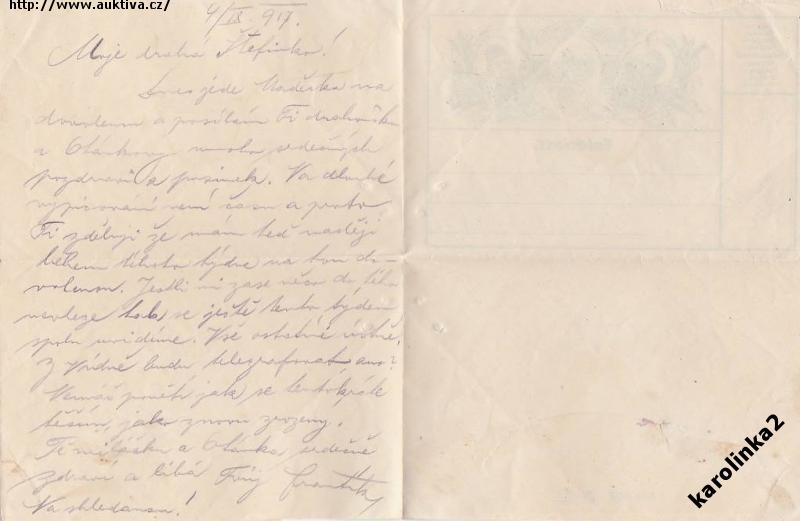 http://www.auktiva.cz/
4/IX. 917.
Moje drahá Štefinko!
Dnes jede Naděska na
dovolenou a posílám Ti drahoušku
a Otánkovy mnoho srdečných
pozdravů a pusinek. Na dlouhé
vypisování není času a proto
Ti zděluji že mám teď naději
během tohoto týdne na tou do-
volenou. Jestli mi zase něco do toho
nevleze tak se ještě tento týden
spolu uvidíme. Vše ostatné ústně.
Z Vídně budu telegrafovat ano?
Nemáš ponětí jak se tentokrát
těším, jako znovu zrozený.
Tě miláčku a Otánka srdečně
zdraví a líbá Tvůj František
Na shledanou!
karolinka2